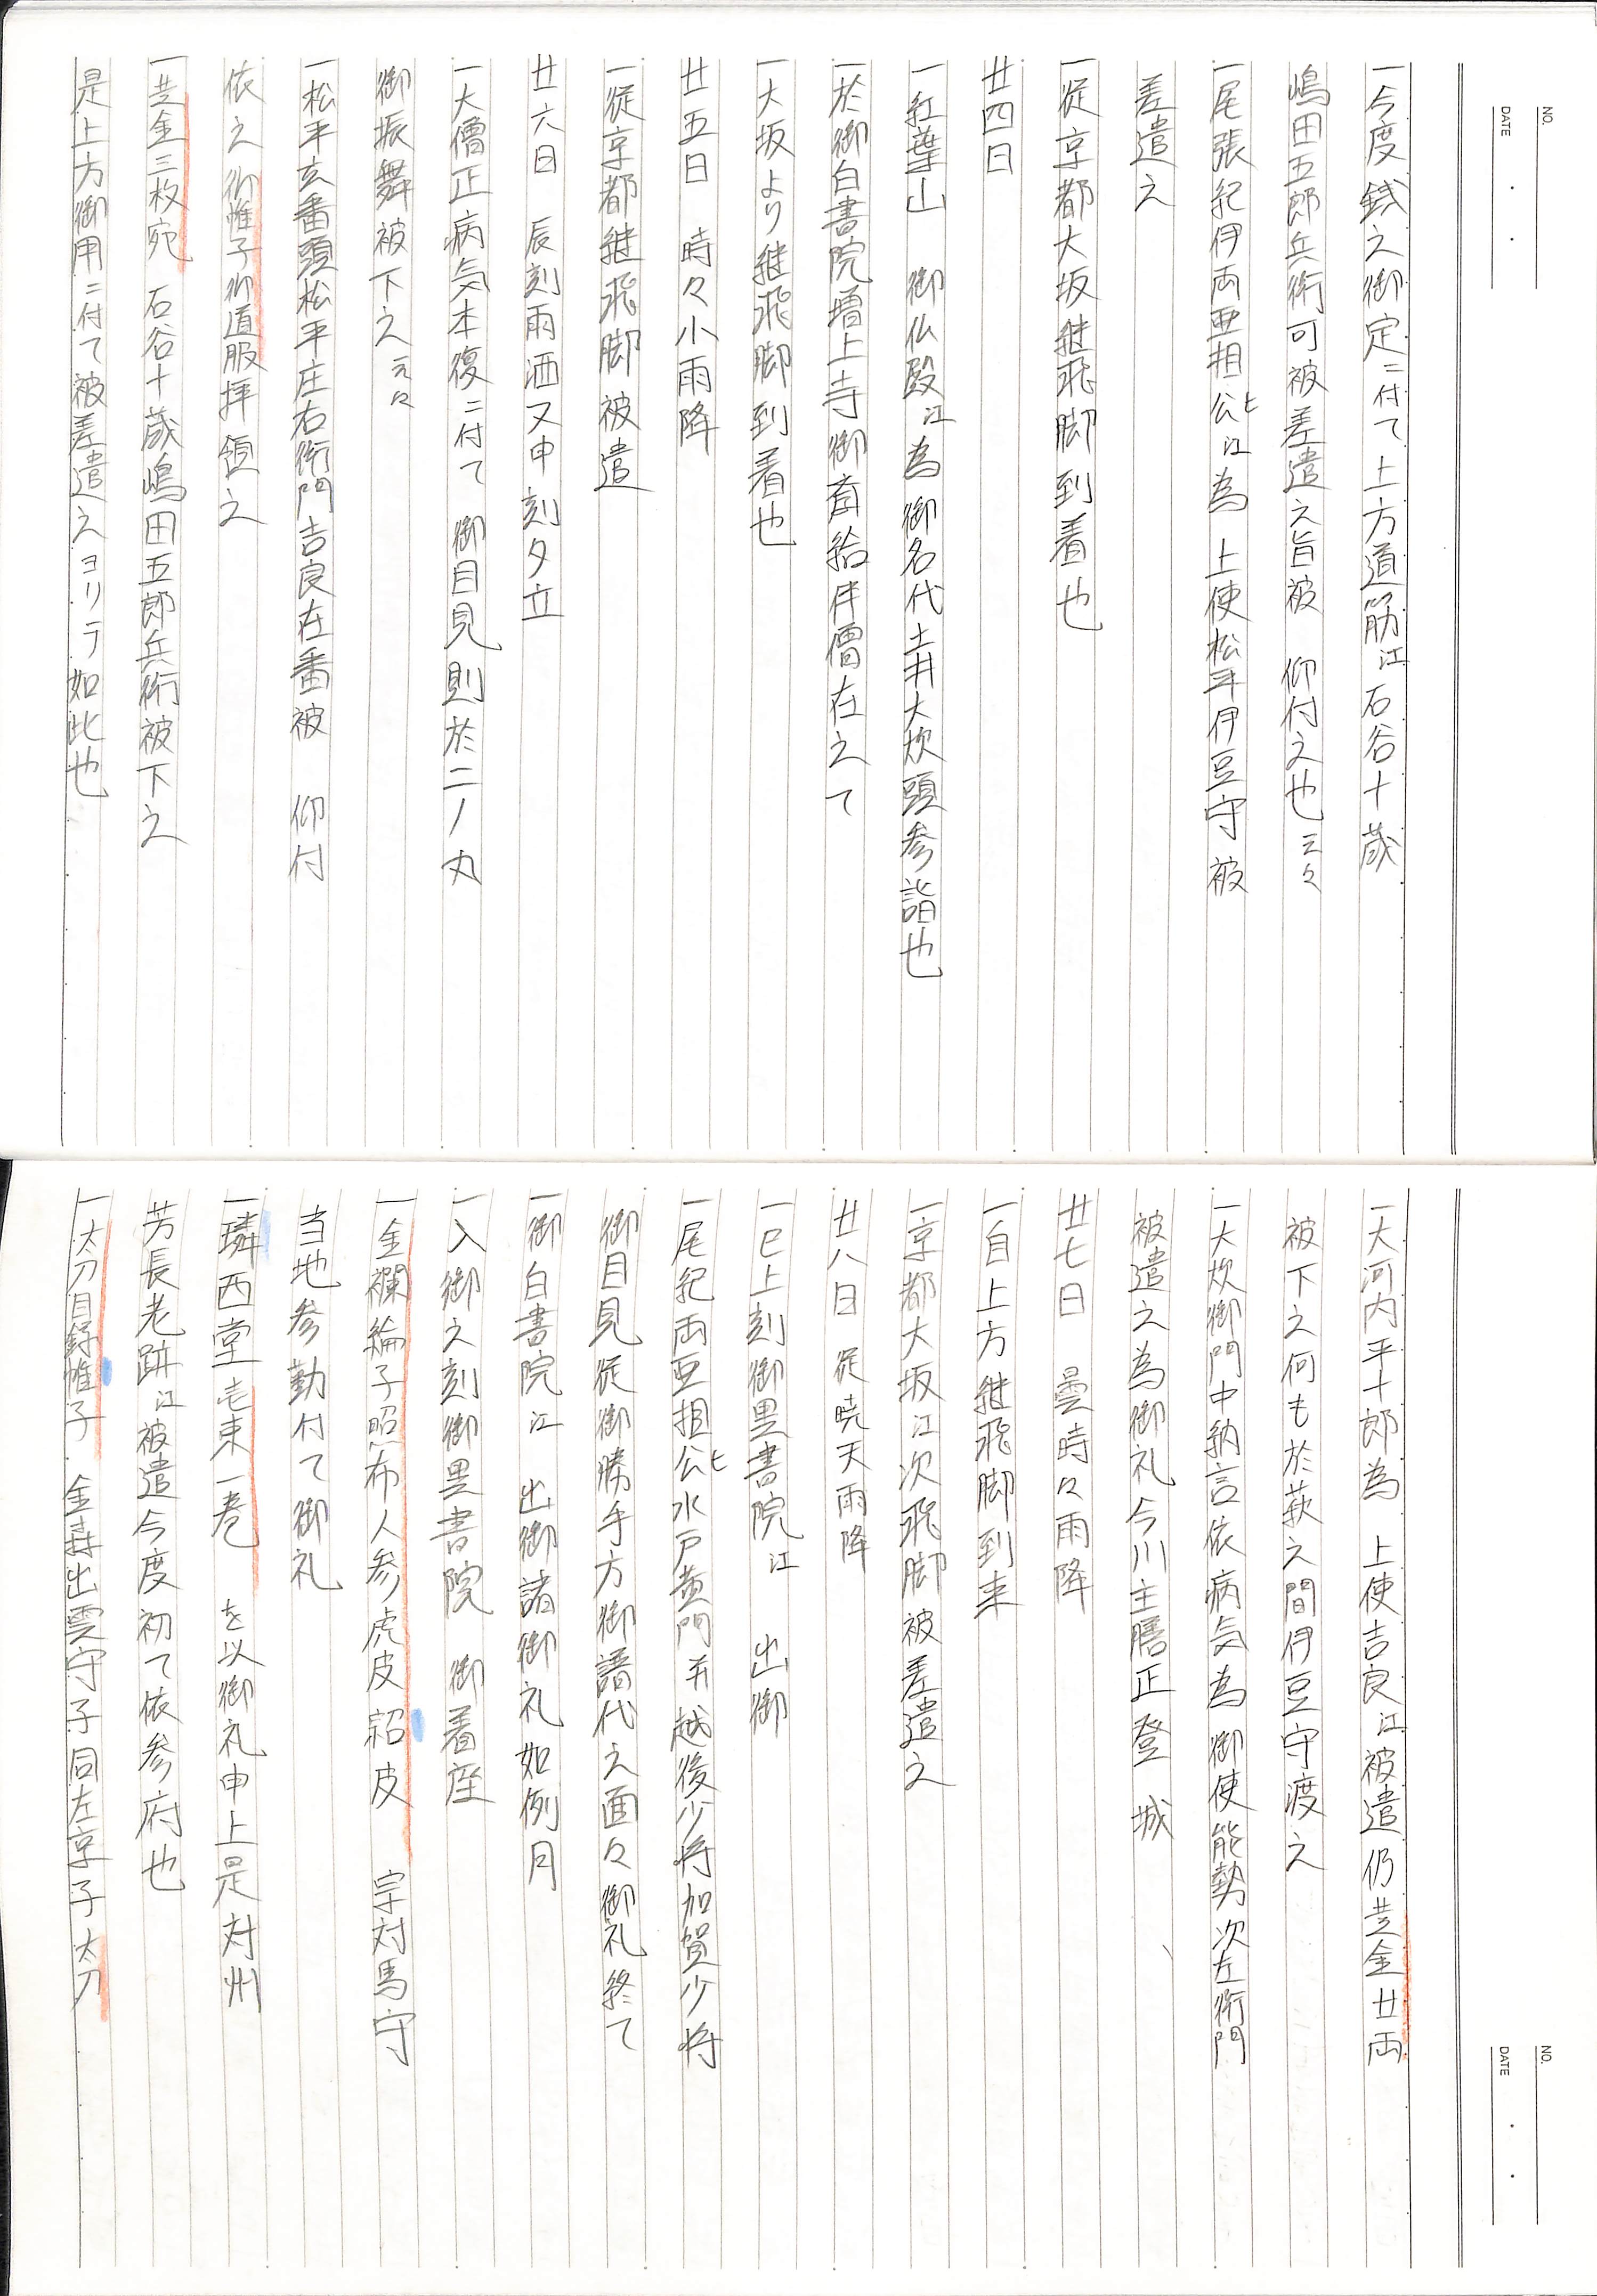 NO.
DATE
一今度銭之御定ニ付て上方道筋江石谷十蔵
嶋田五郎兵衛可被差遣之旨被　仰付之也云々
一尾張紀伊両亜相公と江為　上使松平伊豆守被
差遣之
一従京都大坂継飛脚到着也
廿四日
一紅葉山　御仏殿江為御名代土井大炊頭参詣也
一於御白書院増上寺御斎給伴僧在之て
一大坂より継飛脚到着也
廿五日　時々小雨降
一従京都継飛脚被遣
廿六日　辰刻雨洒又申刻夕立
一大僧正病気本復ニ付て　御目見則於二ノ丸
御振舞被下之云々
一松平玄番頭松平庄右衛門吉良在番被　仰付
依之御帷子御道服拝領之
一黄金三枚宛　石谷十蔵嶋田五郎兵衛被下之
是上方御用ニ付て被差遣之ヨリテ如此也
NO.
DATE
一大河内平十郎為　上使吉良江被遣仍黄金廿両
被下之何も於萩之間伊豆守渡之
一大炊御門中納言依病気為　御使能勢次左衛門
被遣之為御礼今川主膳正登　城
廿七日　曇時々雨降
一自上方継飛脚到来
一京都大坂江次飛脚被差遣之
廿八日　従暁天雨降
一巳上刻御黒書院江　出御
一尾紀両亜相公と水戸黄門并越後少将加賀少将
御目見従御勝手方御譜代之面々御礼終て
一御白書院江　出御諸御礼如例月
一入御之刻御黒書院　御着座
一金襴綸子照布人参虎皮紹皮　宗対馬守
当地参勤付て御礼
一璘西堂壱束一巻　を以御礼申上是対州
芳長老跡江被遣今度初て依参府也
一太刀目録帷子　金森出雲守子同左京子太刀